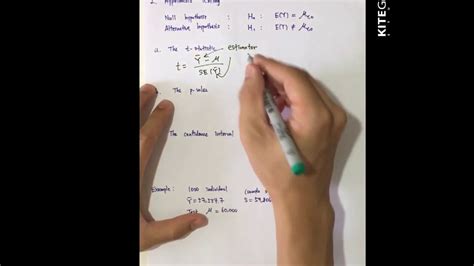 2. Hypothesis testing
Null hypothesis : H₀ : E(Y) = μY,0
Alternative hypothesis : H₁ : E(Y) ≠ μY,0
a. The t-statistic estimator
t = Ȳ - μ / SE(Ȳ)
The p-value
The confidence interval
Example: 1000 individual
Ȳ = 57,587.7
Test μ = 60,000
KITE